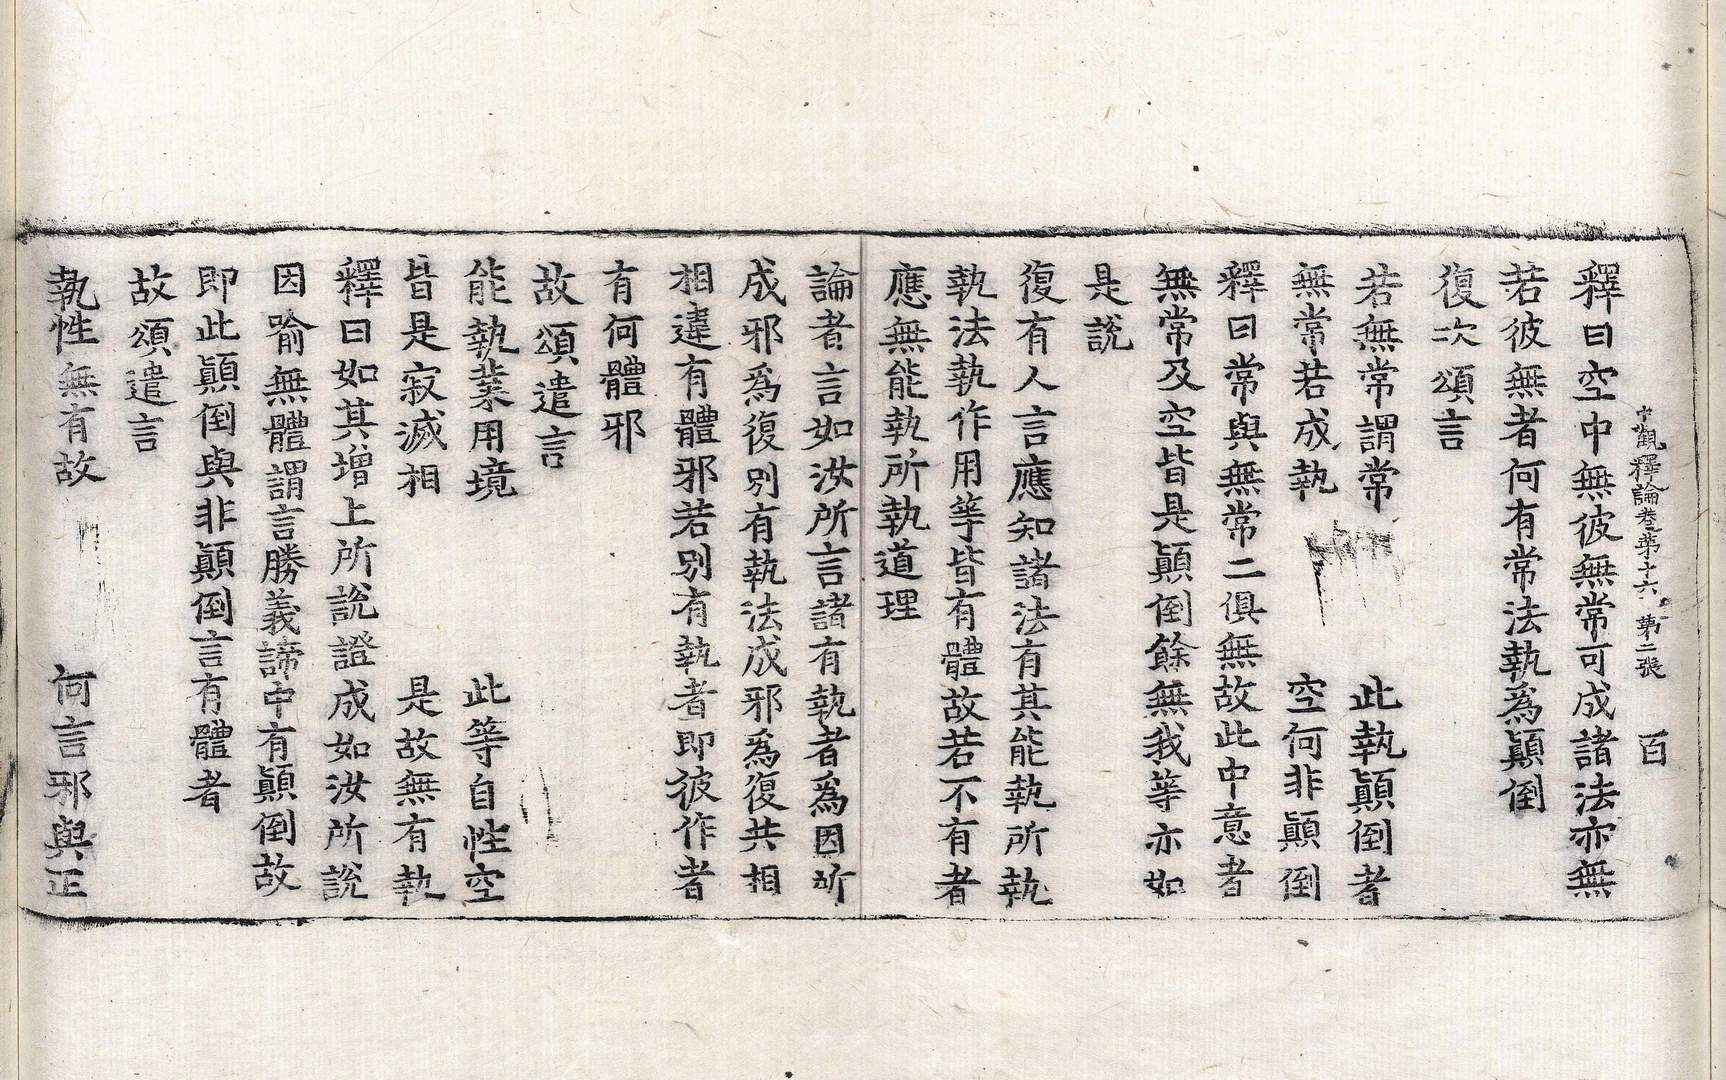 中觀釋論卷第十六 第二張 百
釋曰空中無彼無常可成諸法亦無
若彼無者何有常法執為顚倒
復次頌言
若無常謂常 此執顚倒者
無常若成執 空何非顚倒
釋曰常與無常二俱無故此中意者
無常及空皆是顚倒餘無我等亦如
是說
復有人言應知諸法有其能執所執
執法執作用等皆有體故若不有者
應無能執所執道理
論者言如汝所言諸有執者爲因所
成邪爲復別有執法成邪爲復共相
相違有體邪若別有執者即彼作者
有何體邪
故頌遣言
能執業用境 此等自性空
皆是寂滅相 是故無有執
釋曰如其增上所說證成如汝所說
因喻無體謂言勝義諦中有顚倒故
即此顚倒與非顚倒言有體者
故頌遣言
執性無有故 何言邪與正